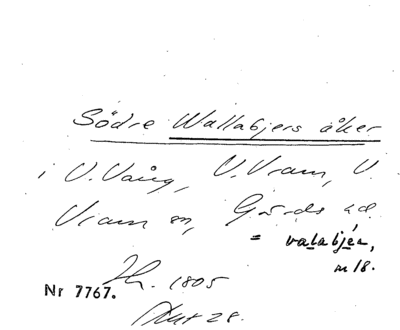 Södre Wallabjers åker
i V. Vång, V. Vram, V.
Vram sn, Gärds hd.
= valabjér,
m 18.
Jb. 1805
Nr 7767.
Akt 28.